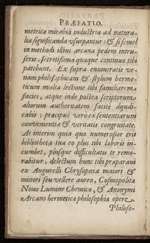 PRÆFATIO.
metrica mirabili industria ad natura-
lia significanda usurpantur: & si simul
in methodi istius arcana fueris intru-
serus, secretissima quæque continuo tibi
patebunt. Ex supra enumeratis ve-
rum philosophicum & stylum hermeti-
cum multa lectione tibi familiarem
facies, atque inde politæ scriptorum
aliorum authoritatem facile dijudi-
cabis: præcipuè verò ex sententiarum
convenientia & veritatis congruitate.
At interim quia quo numerosior erit
bibliotheca tua eo plus tibi laboris in-
cumbet, plusque difficultatis te remo-
rabitur, delectum hunc tibi præparavi
ex Augurelli Chrysopœia majore &
minore seu vellere aureo, Cosmopolita
Novo Lumine Chemico, & Anonymi
Arcano hermeticæ philosophiæ opere
Philoso-